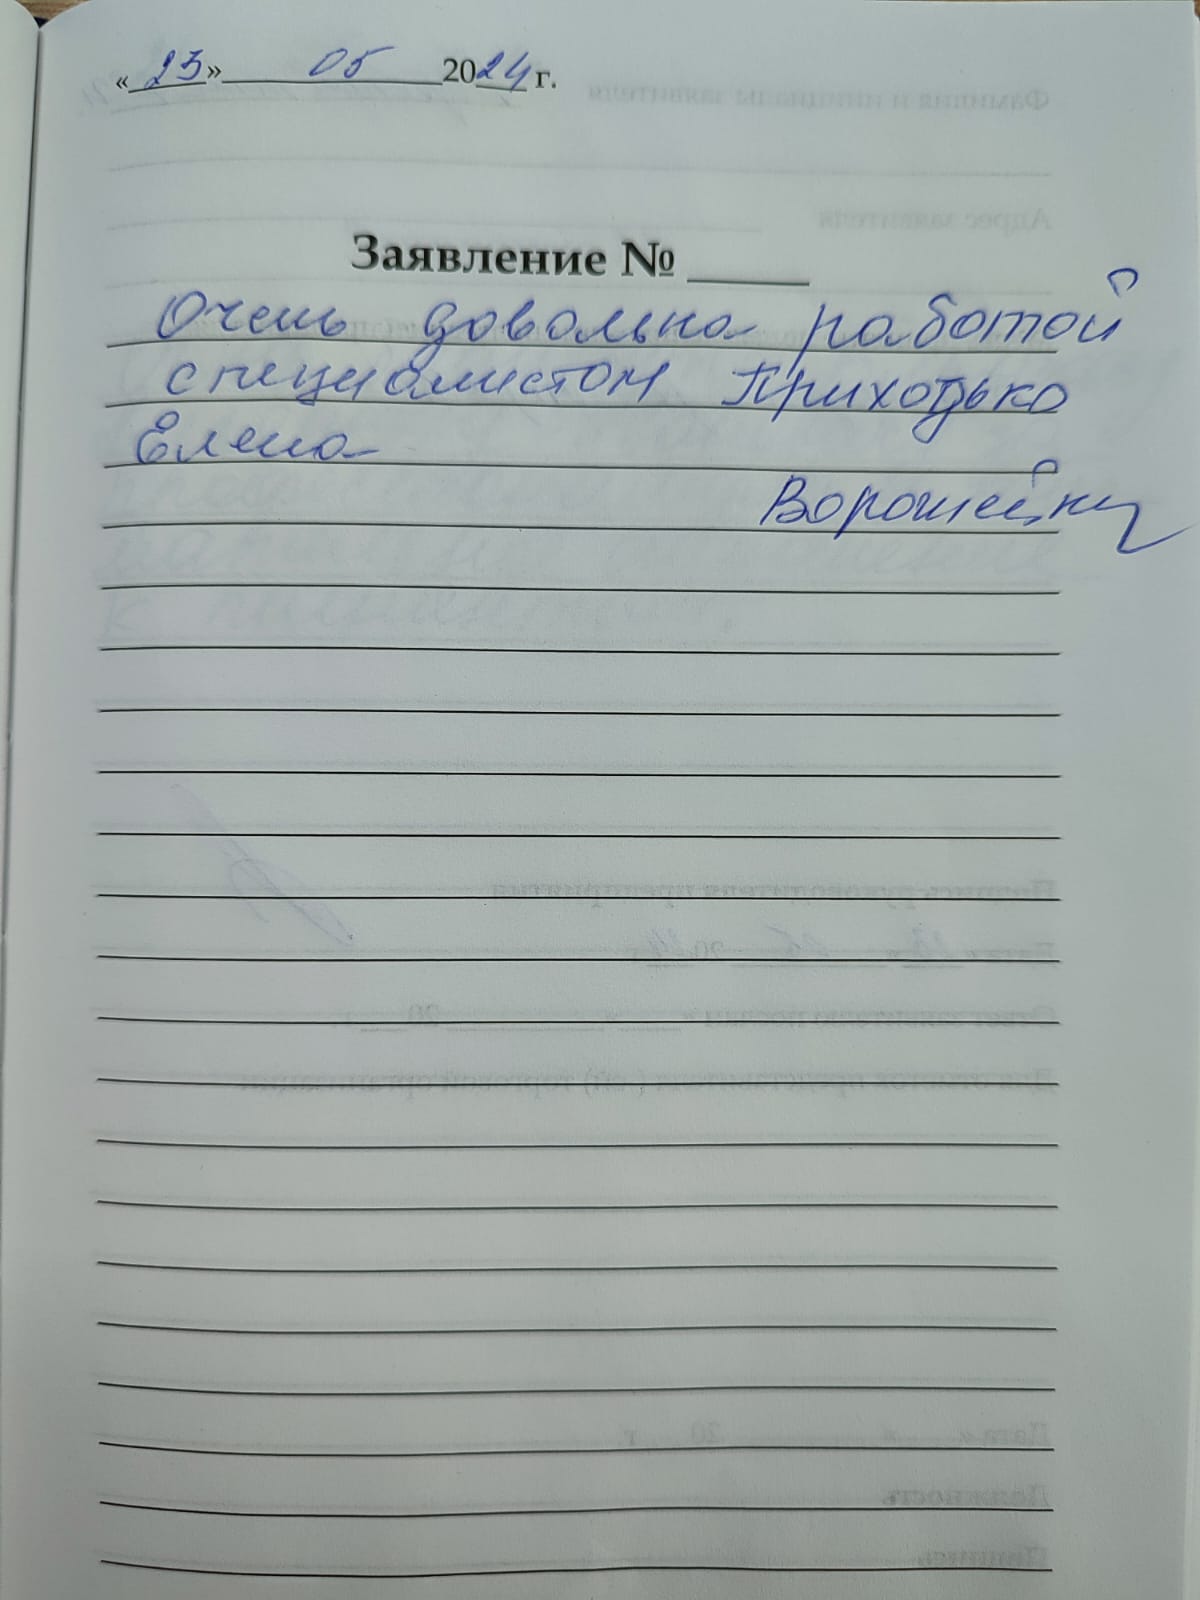 «23» 05 2024 г.
Заявление № ____
Очень довольна работой
специалистом Приходько
Елена